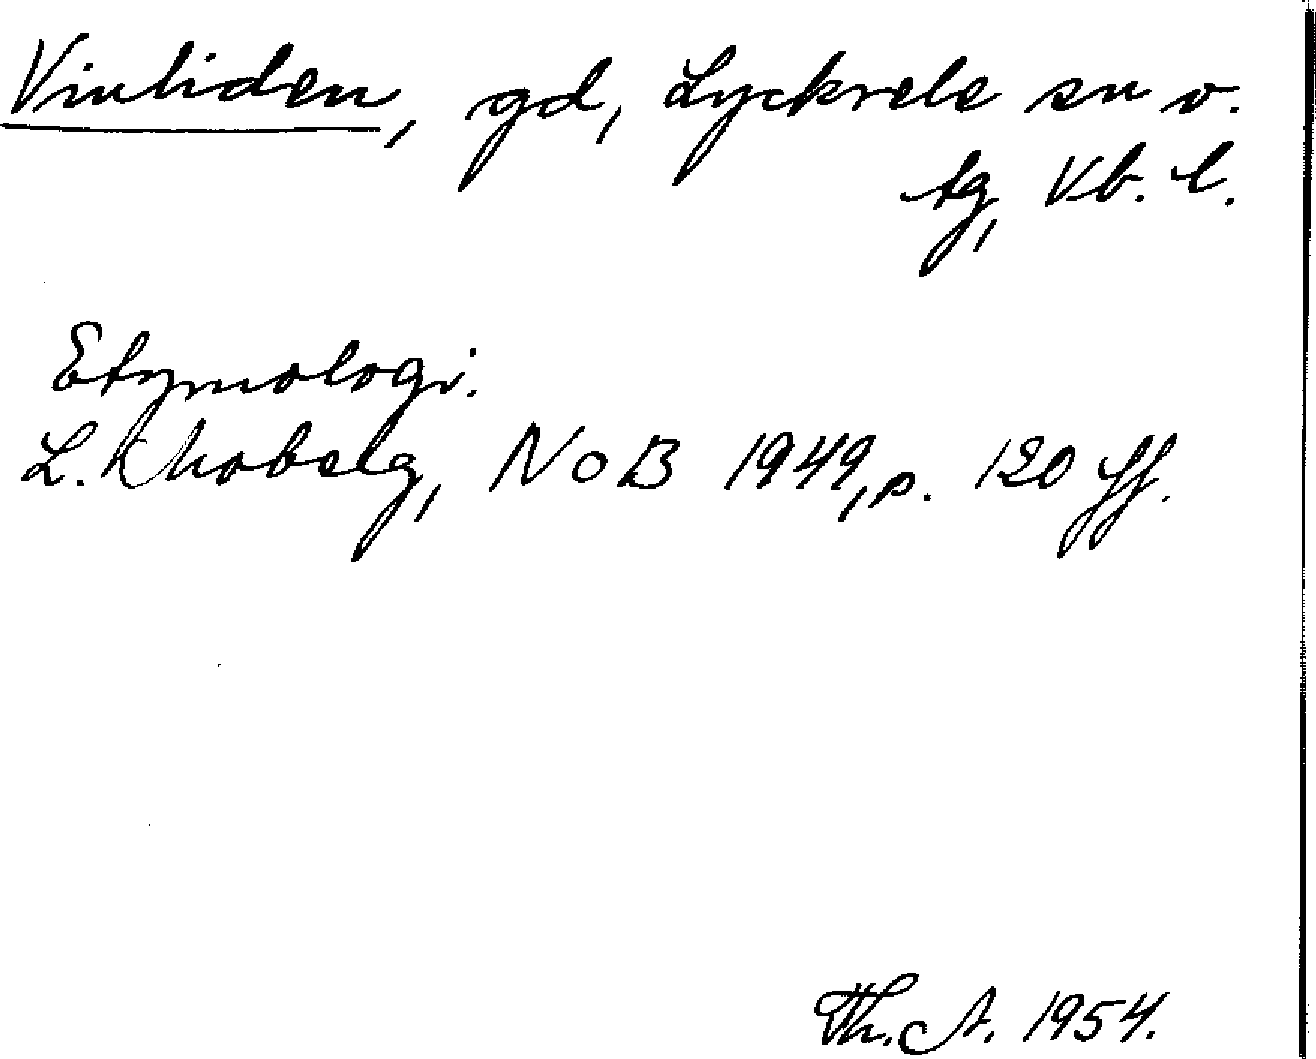 Vinliden, gd, Lycksele sn o.
tg, Vb. l.
Etymologi.
L. Moberg, NoB 1949, p. 120 ff.
Th. A. 1954.